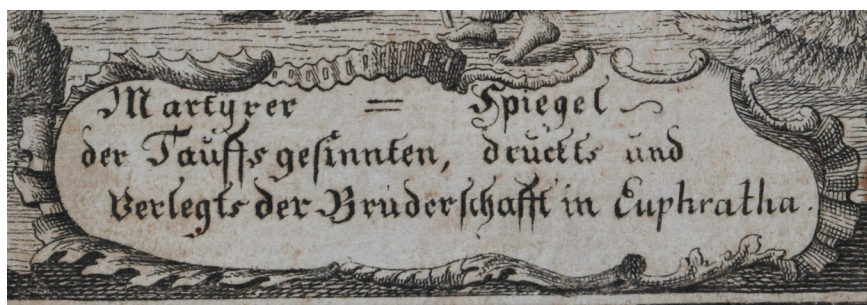 Martyrer = Spiegel ~
der Tauffs gesinnten, druckts und
Verlegts der Bruderschafft in Euphratha.